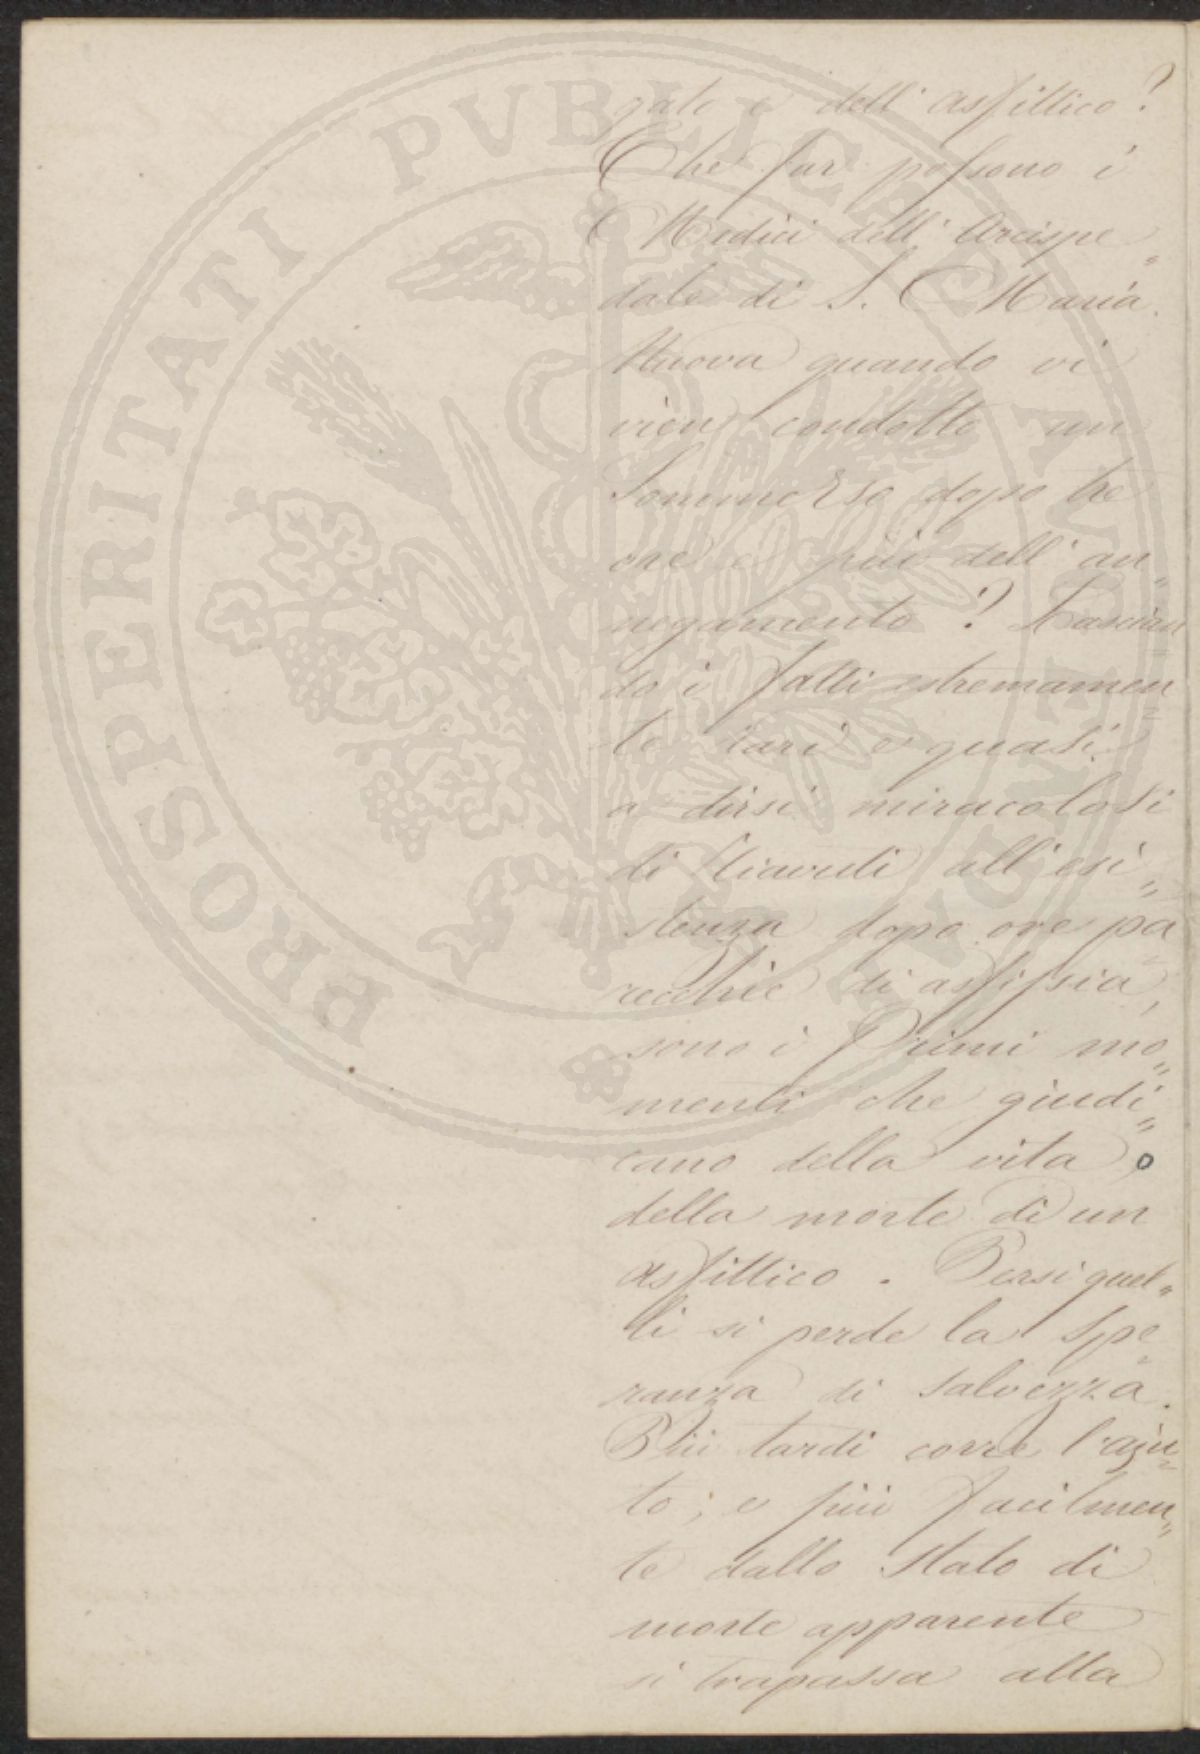 PROSPERITATI PVBLICAE AVGENDAE
gato e dell' asfittico?
Che far possono i
Medici dell' Arcispe„
dale di S. Maria
Nuova quando vi
vien condotto un
Sommerso dopo tre
ore e più dell' an„
negamento? Lascian„
do i fatti estremamen„
te rari e quasi
a dirsi miracolosi
di riavuti all' esi„
stenza dopo ore pa„
recchie di asfissia,
sono i Primi mo„
menti che giudi„
cano della vita o
della morte di un
asfittico. Persi quel„
li si perde la spe„
ranza di salvezza.
Più tardi corre l'aju„
to; e più facilmen„
te dallo stato di
morte apparente
si trapassa alla